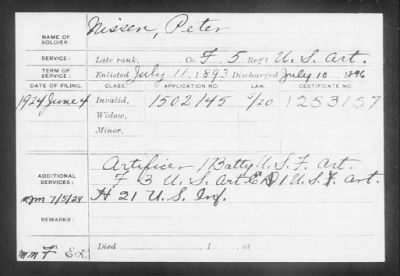 NAME OF SOLDIER: Nissen, Peter
SERVICE: Late rank, Co. F, 5 Reg't U.S. Art.
TERM OF SERVICE: Enlisted July 11, 1893 Discharged July 10, 1896
DATE OF FILING. CLASS. APPLICATION NO. LAW. CERTIFICATE NO.
1924 June 4 Invalid, 1502145 1253157
Widow,
Minor,
ADDITIONAL SERVICES: Artificer 1 Batty U.S.F. Art.
F 3 U.S. Art 1 U.S.F. Art.
H 21 U.S. Inf.
7/5/24
REMARKS:
Died , 1 , at